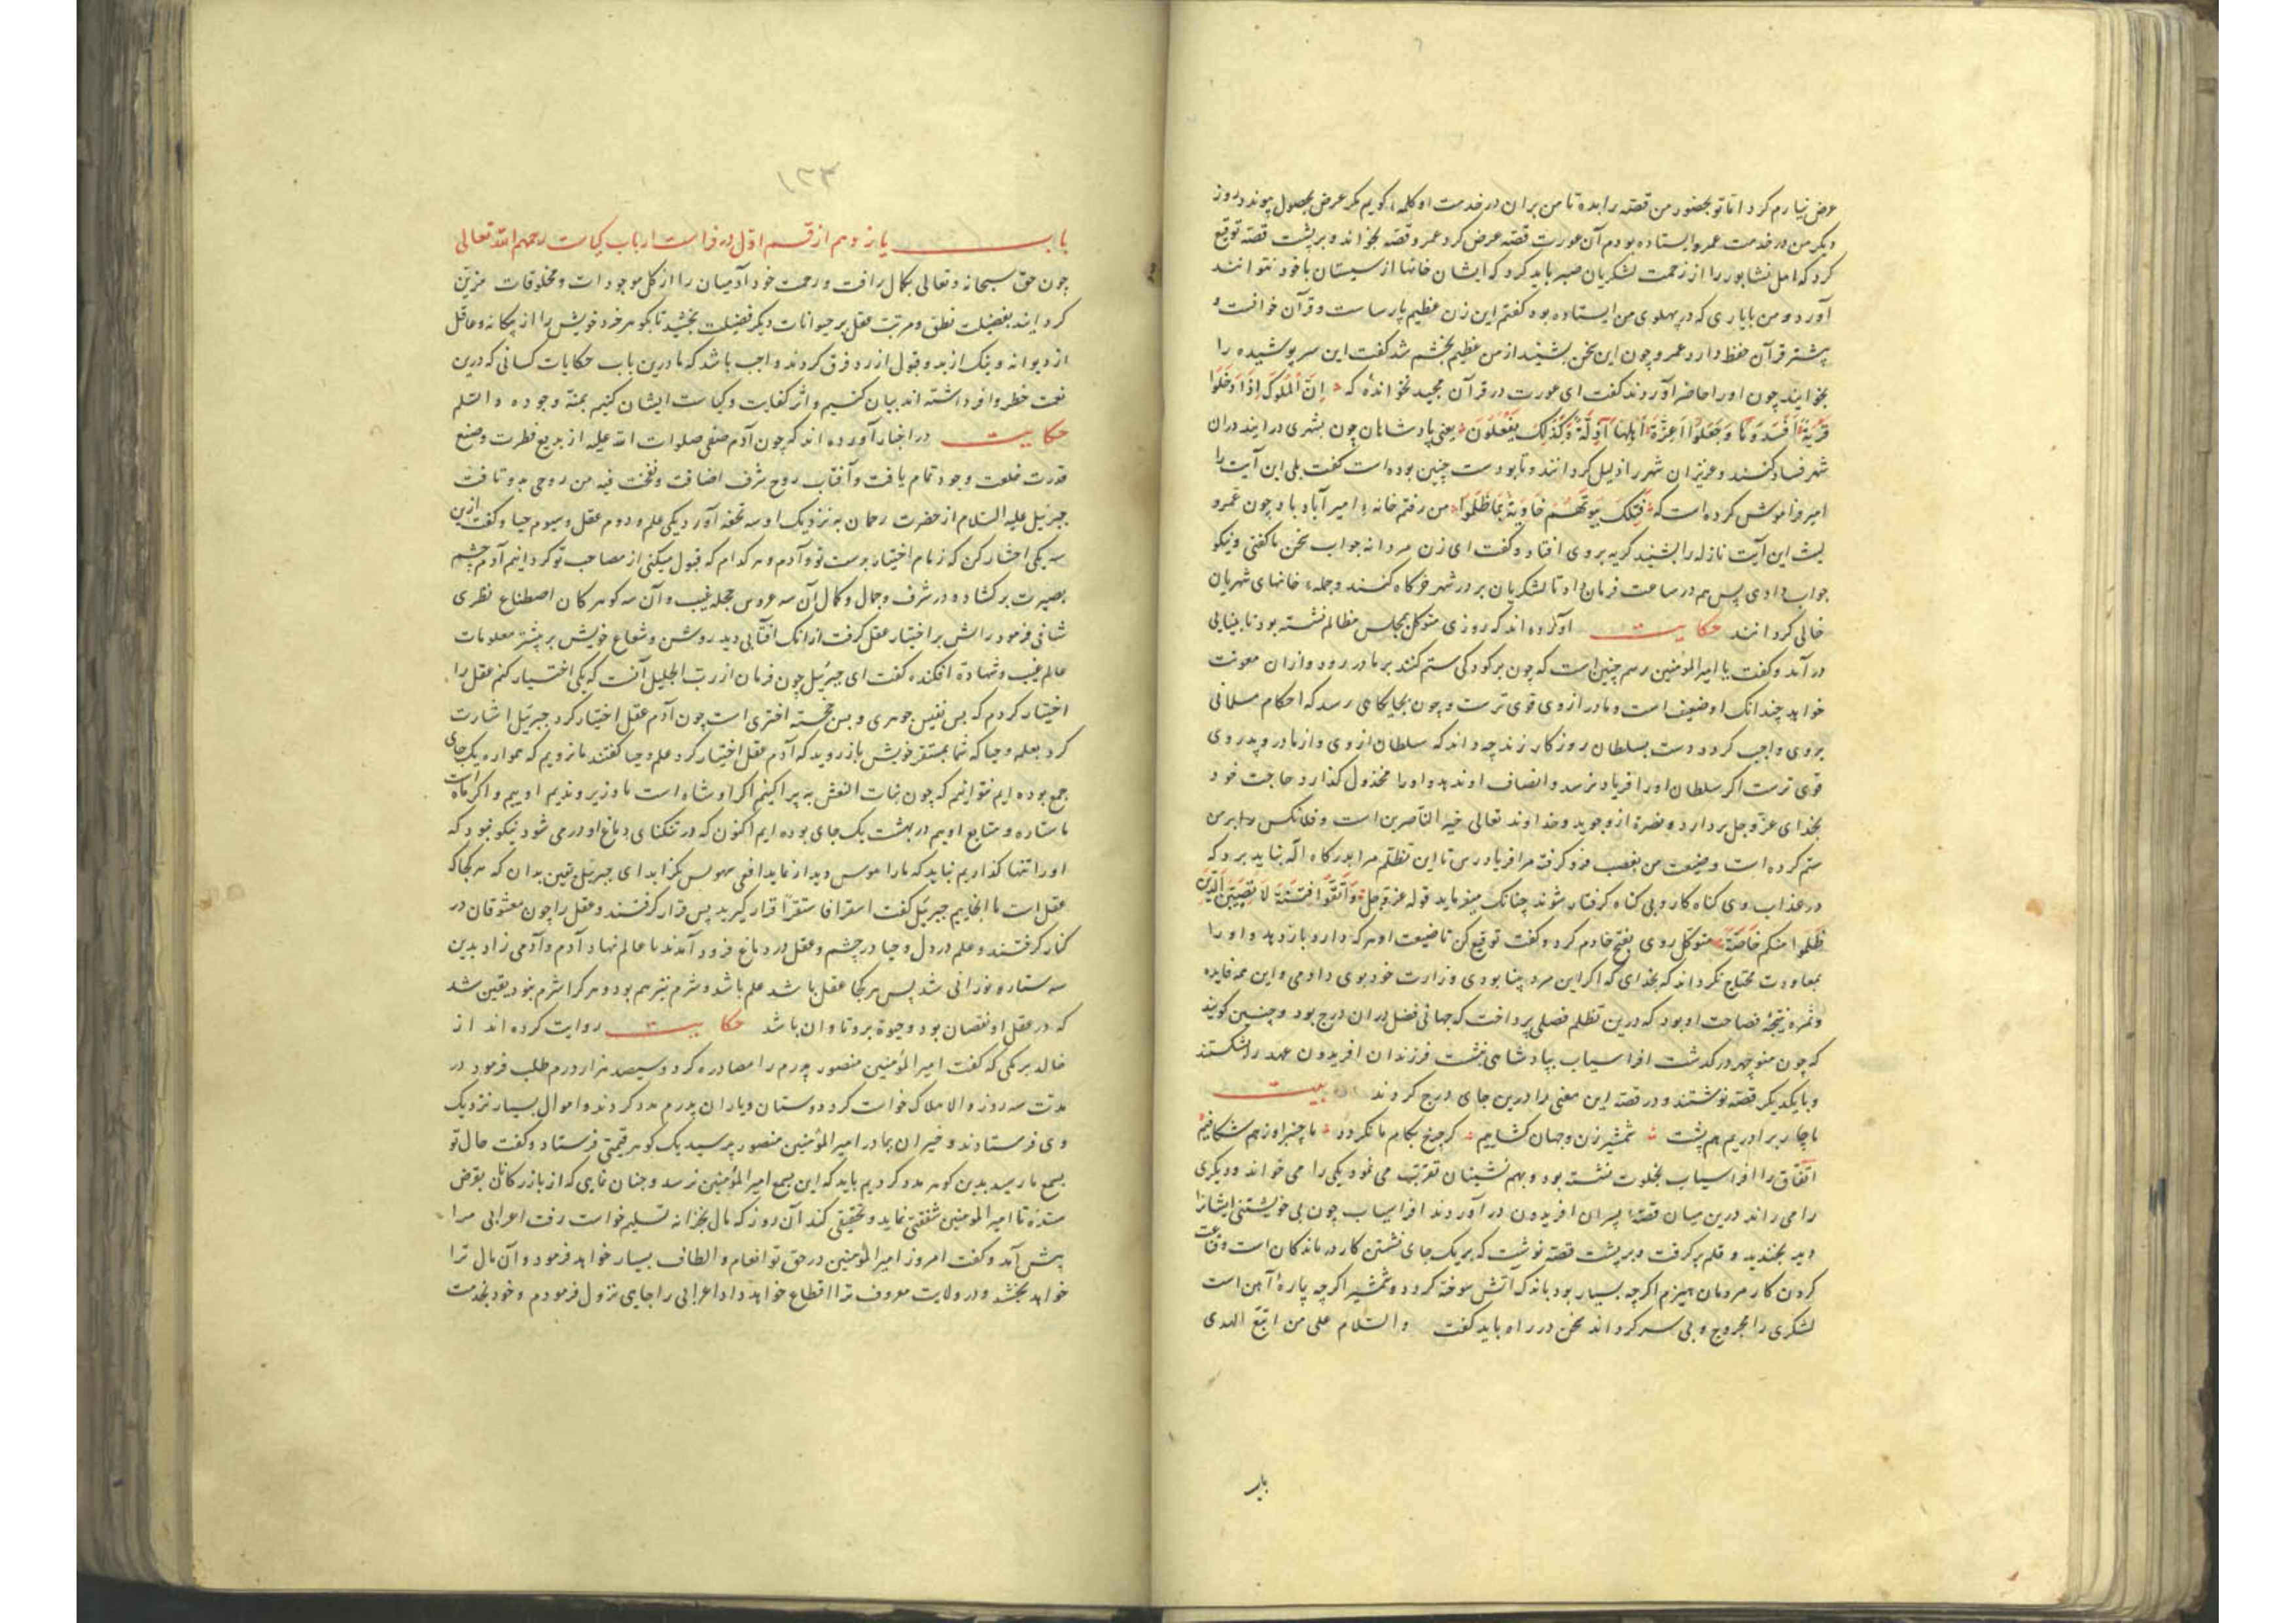 عرض نیارم کرد اما تو بحضور من قصه را بده تا من بران در خدمت او کلمه گویم مگر غرض بحصول پیوندد روز
دیگر من در خدمت عمرو ایستاده بودم آن عورت قصه عرض کرد عمرو قصه بخواند و بر پشت قصه توقیع
کرد که اهل نشابور را از زحمت لشکریان صبر باید کرد که ایشان خانها از سیستان با خود نتوانند
آورد و من با یاری که در پهلوی من ایستاده بود گفتم این زن عظیم پارساست و قرآن خوانست و
پیشتر قرآن حفظ دارد عمرو چون این سخن بشنید از من عظیم بخشم شد گفت این سرپوشیده را
بخوانید چون او را حاضر آوردند گفت ای عورت در قرآن مجید نخوانده که إن الملوك إذا دخلوا
قرية أفسدوها وجعلوا أعزة أهلها أذلة وكذلك يفعلون یعنی پادشاهان چون بشهری درآیند در ان
شهر فساد کنند و عزیزان شهر را ذلیل گردانند و تا بودست چنین بوده است گفت بلی این آیت را
امیر فراموش کرده است که فتلك بيوتهم خاوية بما ظلموا من رفتم خانه امیر آباد باد چون عمرو
لیث این آیت نازله را بشنید گریه بر وی افتاد و گفت ای زن مردانه جواب سخن ما گفتی و نیکو
جواب دادی پس هم در ساعت فرمان داد تا لشکریان بر در شهر خرگاه کنند و جمله خانهای شهریان
خالی گردانند حکایت آورده اند که روزی متوکل بمجلس مظالم نشسته بود نابینایی
در آمد و گفت یا امیر المؤمنین رسم چنین است که چون بر کودکی ستم کنند بر مادر رود و ازان معونت
خواهد چندانک او ضعیف است و مادر از وی قوی ترست و چون بجایگاهی رسد که احکام مسلمانی
بر وی واجب گردد دست بسلطان روزگار زند چه داند که سلطان از وی و از مادر و پدر وی
قوی ترست اگر سلطان او را فریاد نرسد و انصاف او ندهد و او را مخذول گذارد حاجت خود
بخدای عز و جل بردارد و نصرة ازو جوید و خداوند تعالی خیر الناصرین است و فلانکس برین
ستم کرده است و ضیعت من بغصب فرو گرفت مرا فریاد رس تا این تظلم مرا بدرگاه اله نباید برد که
در عذاب وی گناه کار و بی گناه گرفتار شوند چنانک میفرماید قوله عز و جل واتقوا فتنة لا تصيبن الذين
ظلموا منكم خاصة متوکل روی بفتح خادم کرد و گفت توقیع کن تا ضیعت او هر که دارد باز دهد و او را
بمعاودت محتاج نگرداند که بخدای که اگر این مرد بینا بودی وزارت خود بوی دادمی و این همه فایده
و ثمره نتیجه فصاحت او بود که درین تظلم فصلی پرداخت که جهانی فضل در ان درج بود و چنین گویند
که چون منوچهر درگذشت افراسیاب بپادشاهی نشست فرزندان افریدون عهد را شکستند
و با یکدیگر قصه نوشتند و در قصه این معنی را درین جای درج کردند بیت
ناچار برادریم هم پشت شمشیر زن و جهان گشاییم گر چرخ بکام ما نگردد ما چنبر او ز هم شکافیم
اتفاق را افراسیاب بخلوت نشسته بود و بهم نشینان تقرب می نمود یکی را می خواند و دیگری
را می راند درین میان قصه پسران افریدون در آوردند افراسیاب چون بی خویشتنی ایشانرا
دید بخندید و قلم برگرفت و بر پشت قصه نوشت که بر یک جای نشستن کار درماندگان است و قناعت
کردن کار مردمان هیزم اگرچه بسیار بود باندک آتش سوخته گردد و شمشیر اگرچه پارهٔ آهن است
لشکری را مجروح و بی سر گرداند سخن در راه باید گفت والسلام علی من اتبع الهدی
باب
۱۳۳
باب یازدهم از قسم اول در فراست ارباب کیاست رحمهم الله تعالی
چون حق سبحانه و تعالی بکمال رافت و رحمت خود آدمیان را از کل موجودات و مخلوقات مزین
گردانید بفضیلت نطق و مرتبت عقل بر حیوانات دیگر فضیلت بخشید تا بگوهر خرد خویش را از بیگانه و عاقل
از دیوانه و نیک از بد و قبول از رد فرق کردند واجب باشد که ما درین باب حکایات کسانی که درین
نعمت حظ وافر داشته اند بیان کنیم و اثر کفایت و کیاست ایشان کنیم بمنه وجوده والسلم
حکایت در اخبار آورده اند که چون آدم صفی صلوات الله علیه از بدیع فطرت و صنع
قدرت خلعت وجود تمام یافت و آفتاب روح شرف اضافت ونفخت فيه من روحي برو تافت
جبرئیل علیه السلام از حضرت رحمان به نزدیک او سه تحفه آورد یکی علم و دوم عقل و سیوم حیا و گفت ازین
سه یکی اختیار کن که زمام اختیار بدست تو و آدم و هر کدام که قبول میکنی از مصاحب تو گردانیم آدم چشم
بصیرت برگشاد و در شرف و جمال و کمال آن سه عروس حجله غیب و آن سه گوهر کان اصطناع نظری
شافی فرمود رایش بر اختیار عقل گرفت ازانک افتابی دید روشن و شعاع خویش بر بیشتر معلومات
عالم غیب و شهادة افکنده گفت ای جبرئیل چون فرمان از رب الجلیل آنست که یکی اختیار کنم عقل را
اختیار کردم که بس نفیس جوهری و بس خجسته اختری است چون آدم عقل اختیار کرد جبرئیل اشارت
کرد بعلم و حیا که شما بمستقر خویش باز روید که آدم عقل اختیار کرد علم و حیا گفتند ما نرویم که همواره یک جای
جمع بوده ایم نتوانیم که چون بنات النعش پراکنیم اگر او شاه است ما وزیر و ندیم اوییم و اگر ماه است
ما ستاره و متابع اوییم در بهشت یک جای بوده ایم اکنون که در تنگنای دماغ او درمی شود نیکو نبود که
او را تنها گذاریم نباید که ما را هوس دیدار نماید افعی سهوس بگزاید ای جبرئیل یقین بدان که هر کجا که
عقل است ما انجاییم جبرئیل گفت استقرا فاستقرا قرار گیرید پس قرار گرفتند و عقل را چون معشوقان در
کنار گرفتند و علم در دل و حیا در چشم و عقل در دماغ فرود آمدند تا عالم نهاد آدم و آدمی زاد بدین
سه ستاره نورانی شد پس هر کجا عقل باشد علم باشد و شرم نیز هم بود و هر کرا شرم نبود یقین شد
که در عقل او نقصان بود و حیوة برو تاوان باشد حکایت روایت کرده اند از
خالد برمکی که گفت امیر المؤمنین منصور پدرم را مصادره کرد و سیصد هزار درم طلب فرمود در
مدت سه روز والا هلاک خواست کرد دوستان و یاران پدرم مدد کردند و اموال بسیار نزدیک
وی فرستادند و خیزران بمادر امیر المؤمنین منصور پرسید یک گوهر قیمتی فرستاد و گفت حال تو
بسمع ما رسید بدین گوهر مدد کردیم باید که این بسمع امیر المؤمنین نرسد و چنان نمایی که از بازرگانان بقرض
ستدهٔ تا امیر المومنین شفقتی نماید و تخفیفی کند آن روز که مال بخزانه تسلیم خواست رفت اعرابی مرا
پیش آمد و گفت امروز امیر المؤمنین در حق تو انعام و الطاف بسیار خواهد فرمود و آن مال ترا
خواهد بخشد و در ولایت معروف ترا اقطاع خواهد داد اعرابی را جای نزول فرمودم و خود بخدمت